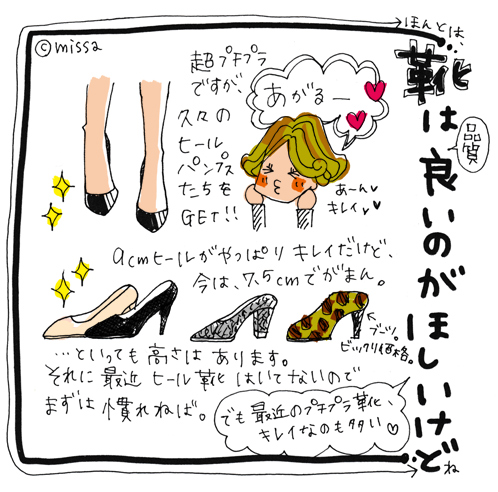 ©missa
ほんとは、
靴は良いのがほしいけど
品質
ね
超プチプラ
ですが、
久々の
ヒール
パンプス
たちを
GET!!
あがるー
あーん
キレイ
9cmヒールがやっぱりキレイだけど、
今は、7.5cmでがまん。
ブーツ。
ビックリ価格。
…といっても高さはあります。
それに最近ヒール靴はいてないので
まずは慣れねば。
でも最近のプチプラ靴、
キレイなのも多い